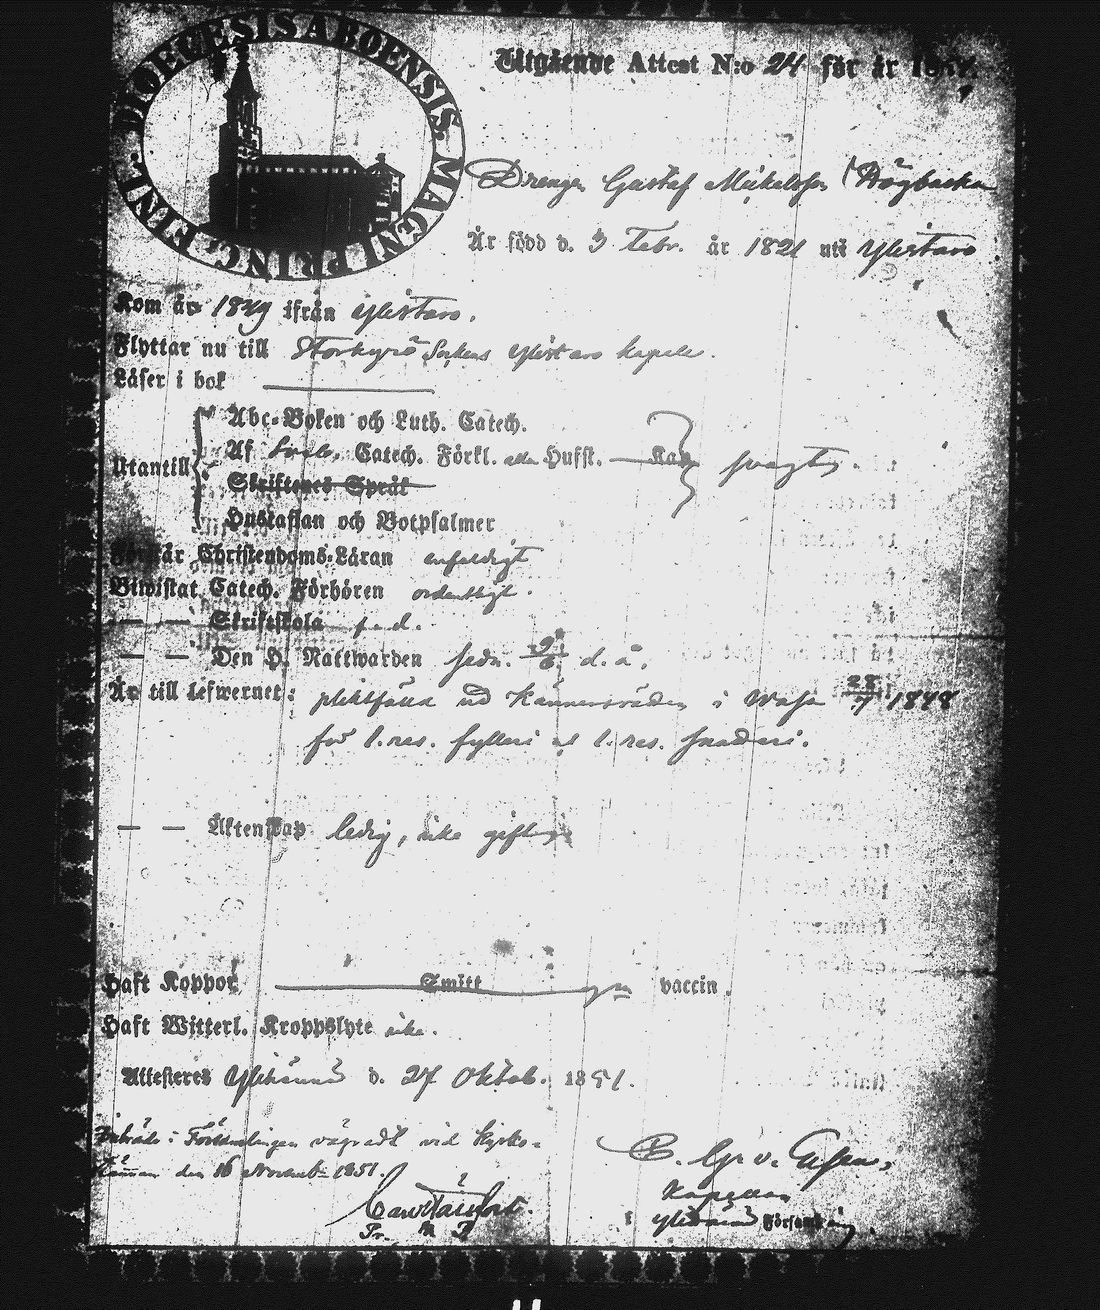 DIOECESIS ABOENSIS. MAGNI PRINC. FINL.
Utgående Attest N:o 24 för år 1851.
Drengen Gustaf Mickelsson Högbacka
Är född d. 5 Febr. år 1821 uti Ylistaro
Kom år 1849 ifrån Ylistaro.
Flyttar nu till Storkyrö Sockens Ylistaro kapell.
Läser i bok
Utantill
Abc-Boken och Luth. Catech.
Af Catech. Förkl. Hufst. Kap
Skriftenes Språk
Hustaflan och Botpsalmer
svagt.
Förstår Christendoms-Läran enfaldigt
Biwistat Catech. Förhören ordentligt.
— — Skriftskola
— — Den H. Nattwarden sedn. d. å.
Är till lefwernet: pliktfälld vid Kämnersrätten i Wasa 28/7 1848
för 1. res. fylleri och 1. res. snatteri.
— — Äktenskap ledig, icke gift
Haft Koppor Smitt vaccin.
Haft Witterl. Kroppslyte icke.
Attesteras Ylihärmä d. 27 Oktob. 1851.
Inträde i Församlingen vägradt vid kyrko-
stämman den 16 Novemb. 1851.
Kapellan
i Ylihärmä Församling